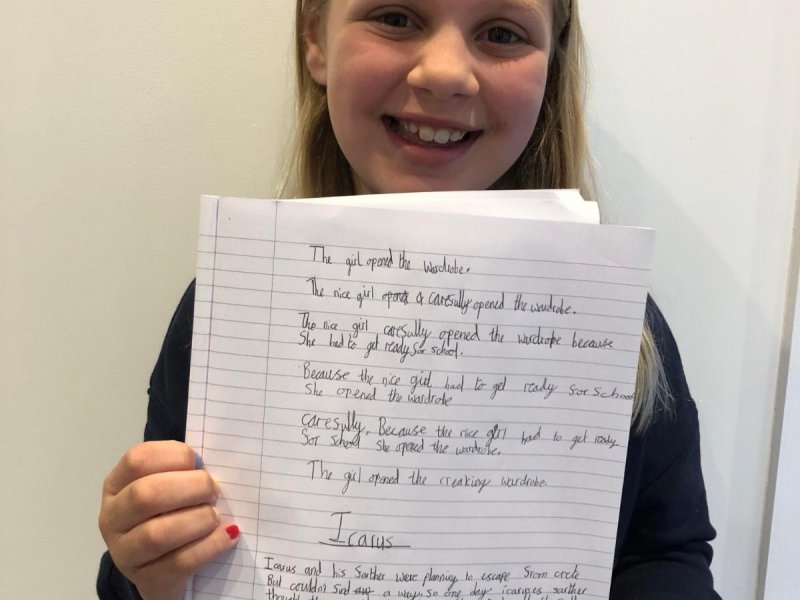 The girl opened the wardrobe.
The nice girl opened & caresully opened the wardrobe.
The nice girl caresully opened the wardrope because
She had to get ready sor school.
Because the nice girl had to get ready sor School
She opened the wardrobe
caresully, Because the nice girl had to get ready
Sor School She opened the wardrobe.
The girl opened the creaking wardrobe.
Icarus
Icarus and his Sarther were planning to escape Srom crete
But couldn't Sind a way. So one day icaruses sarther
thought